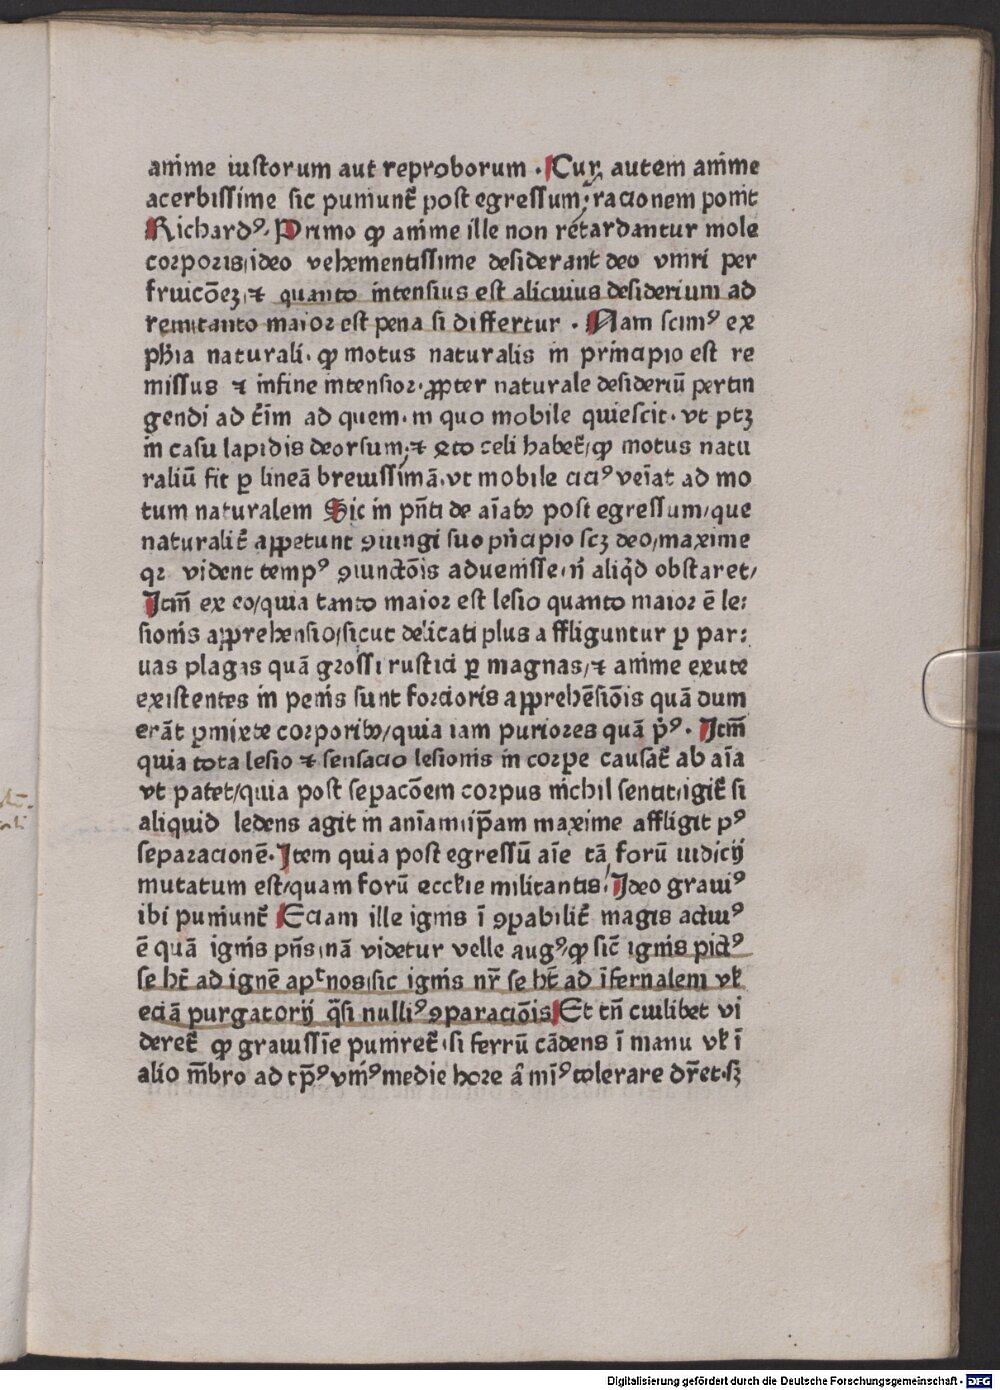 anime iustorum aut reproborum · Cur autem anime
acerbissime sic puniunt᷑ post egressum, racionem ponit
Richardꝰ. Primo ꝙ anime ille non retardantur mole
corporis, ideo vehementissime desiderant deo vniri per
fruicōeꝫ, ⁊ quanto intensius est alicuius desiderium ad
rem, tanto maior est pena si differtur · Nam scimꝰ ex
phīa naturali · ꝙ motus naturalis in principio est re
missus ⁊ in fine intensior · ꝓpter naturale desideriū pertin
gendi ad t̄im ad quem · in quo mobile quiescit · vt ptꝫ
in casu lapidis deorsum, ⁊ ꝯto celi habet᷑, ꝙ motus natu
raliū fit ꝑ lineā breuissimā, vt mobile ciciꝰ veīat ad mo
tum naturalem Sic in pn̄ti de aīabꝫ post egressum, que
naturalit᷑ appetunt ꝯiungi suo pͥncipio scꝫ deo, maxime
qꝛ vident tempꝰ ꝯiunctōis aduenisse, ñ aliqͥd obstaret,
Itm̄ ex eo, quia tanto maior est lesio quanto maior ē le:
sionis apprehensio, sicut delicati plus affliguntur ꝑ par:
uas plagas quā grossi rustici ꝑ magnas, ⁊ anime exute
existentes in penis sunt forcioris apprehēsiōis quā dum
erāt ꝑmixte corporibꝫ, quia iam puriores quā pͥꝰ · Itm̄
quia tota lesio ⁊ sensacio lesionis in corpe causat᷑ ab aīa
vt patet, quia post sepacōem corpus nichil sentit, igit᷑ si
aliquid ledens agit in aniam, ip̄am maxime affligit pꝰ
separacionē · Item quia post egressū aīe tā forū iudicij
mutatum est, quam forū eccl̄ie militantis, Ideo grauiꝰ
ibi puniunt᷑ Eciam ille ignis ī ꝯpabilit᷑ magis actiuꝰ
ē quā ignis pn̄s, nā videtur velle augꝰ, ꝙ sic̄ ignis pictꝰ
se ht̄ ad ignē apᵗ nos, sic ignis nr̄ se ht̄ ad īfernalem vł
eciā purgatorij qͣsi nulliꝰ ꝯparaciōis Et tn̄ cuilibet vi
deret᷑ ꝙ grauissīe puniret᷑, si ferrū cādens ī manu vł ī
alio mēbro ad tp̄ꝰ vniꝰ medie hore aͭ miꝰ tolerare dr̄et · sꝫ
Digitalisierung gefördert durch die Deutsche Forschungsgemeinschaft - DFG